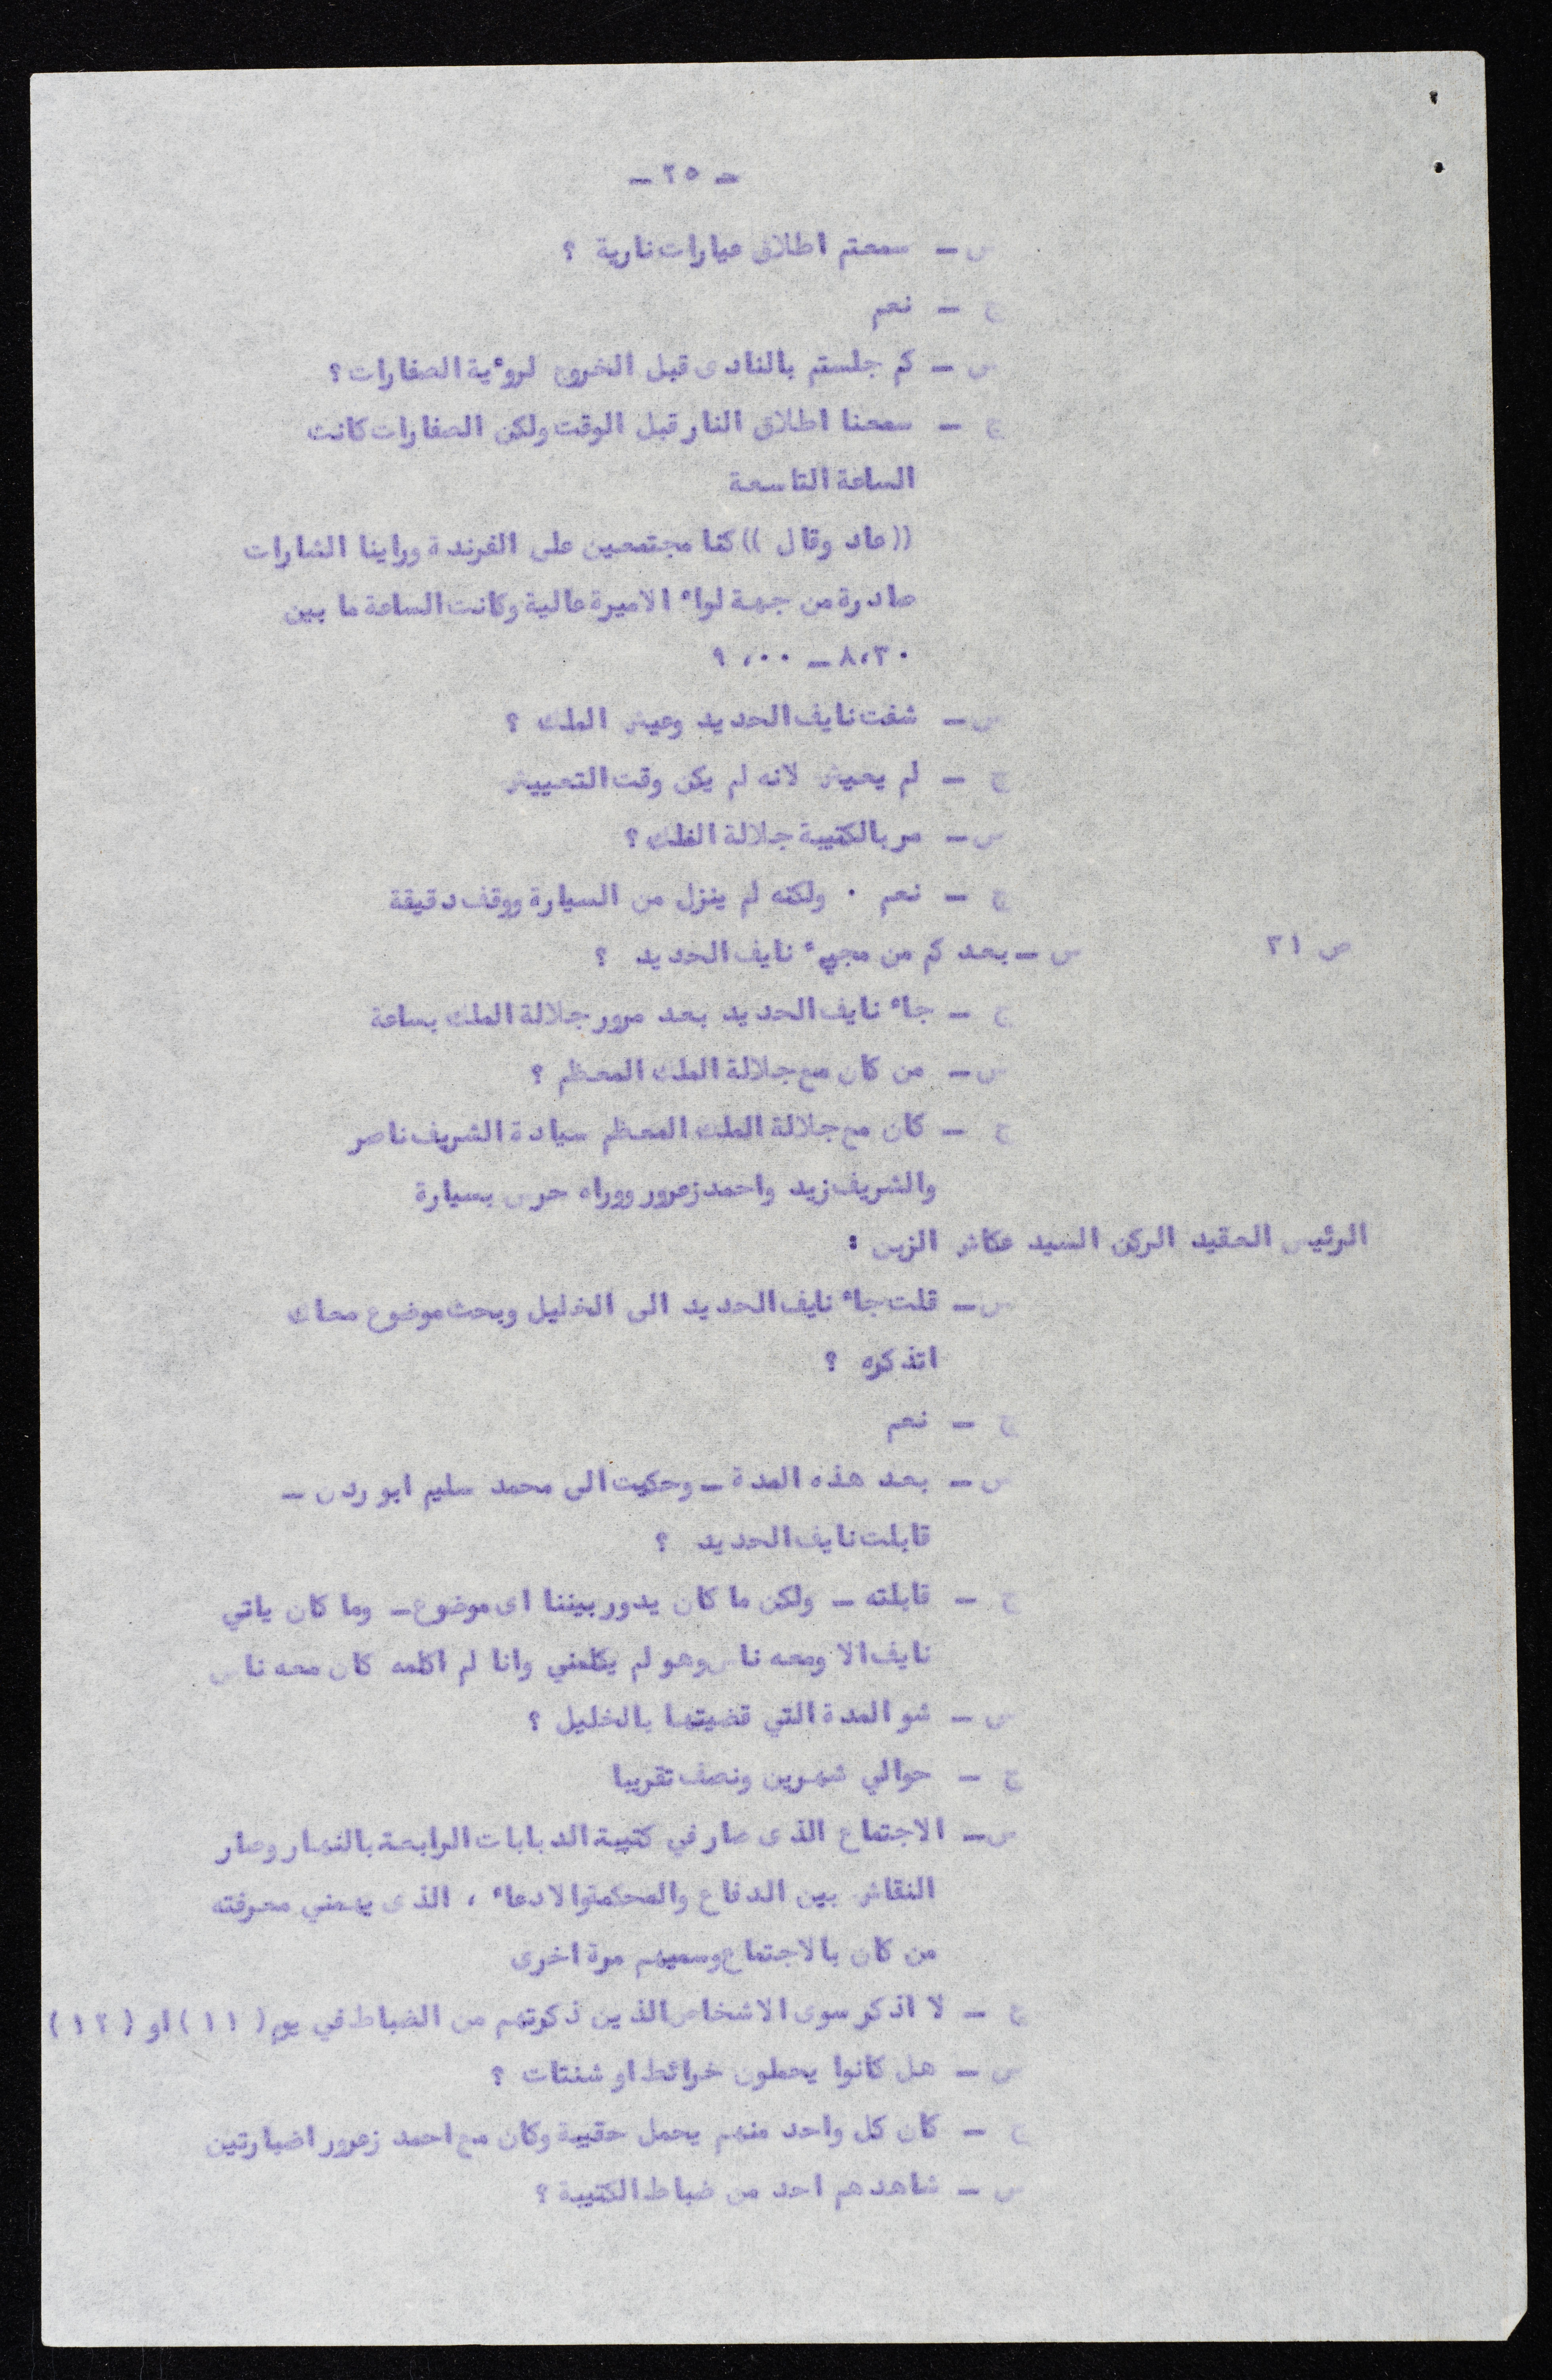 - ٢٥ -
س - سمعتم اطلاق عيارات نارية ؟
ج - نعم
س - كم جلستم بالنادى قبل الخروج لروءية الصفارات ؟
ج - سمعنا اطلاق النار قبل الوقت ولكن الصفارات كانت
الساعة التاسعة
((عاد وقال )) كنا مجتمعين على الفرندة وراينا الشارات
صادرة من جهة لواء الاميرة عالية وكانت الساعة ما بين
٨،٣٠ - ٩،٠٠
س - شفت نايف الحديد وعيش الملك ؟
ج - لم يعيش لانه لم يكن وقت التعييش
س - مر بالكتيبة جلالة الملك ؟
ج - نعم ٠ ولكنه لم ينزل من السيارة ووقف دقيقة
ص ٢١ س - بعد كم من مجيء نايف الحديد ؟
ج - جاء نايف الحديد بعد مرور جلالة الملك بساعة
س - من كان مع جلالة الملك المعظم ؟
ج - كان مع جلالة الملك المعظم سيادة الشريف ناصر
والشريف زيد واحمد زعرور ووراه حرس بسيارة
الرئيس العقيد الركن السيد عكاش الزبن :
س - قلت جاء نايف الحديد الى الخليل وبحث موضوع معاك
اتذكره ؟
ج - نعم
س - بعد هذه المدة - وحكيت الى محمد سليم ابو ردن -
قابلت نايف الحديد ؟
ج - قابلته - ولكن ما كان يدور بيننا اى موضوع - وما كان ياتي
نايف الا ومعه ناس وهو لم يكلمني وانا لم اكلمه كان معه ناس
س - شو المدة التي قضيتها بالخليل ؟
ج - حوالي شهرين ونصف تقريبا
س - الاجتماع الذى صار في كتيبة الدبابات الرابعة بالنهار وصار
النقاش بين الدفاع والمحكمةوالادعاء ، الذى يهمني معرفته
من كان بالاجتماع وسميهم مرة اخرى
ج - لا اذكر سوى الاشخاص الذين ذكرتهم من الضباط في يوم (١١) او (١٢)
س - هل كانوا يحملون خرائط او شنتات ؟
ج - كان كل واحد منهم يحمل حقيبة وكان مع احمد زعرور اضبارتين
س - شاهدهم احد من ضباط الكتيبة ؟